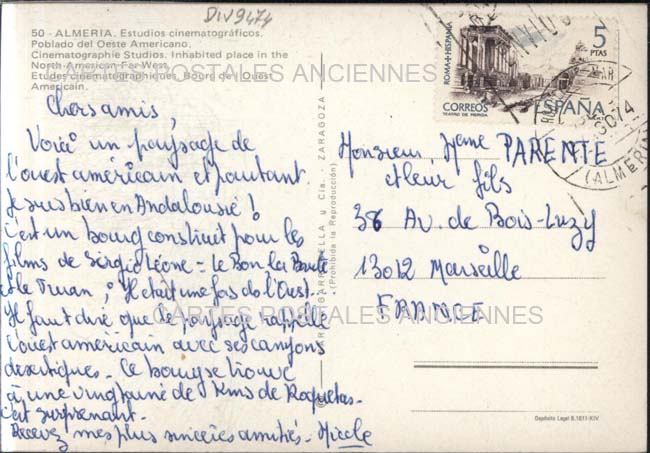 DIV9474
50 - ALMERIA. Estudios cinematográficos.
Poblado del Oeste Americano.
Cinematographie Studios. Inhabited place in the
North American Far-West.
Etudes cinematographiques. Bourg de l'Ouest
Americain.
CARTES POSTALES ANCIENNES
Chers amis,
Voici un paysage de
l'ouest américain et pourtant
Je suis bien en Andalousie !
C'est un bourg construit pour les
films de Sergio Léone - Le Bon, la Brute
et le Truan, Il était une fois de l'Ouest.
Il faut dire que le paysage rappelle
l'ouest américain avec ses canyons
désertiques. Ce bourg se trouve
à une vingtaine de Kms de Roquetas.
C'est surprenant.
Recevez mes plus sincères amitiés.
ZARAGOZA
(Prohibida la Reproducción)
ROMA+HISPANIA
5
PTAS
CORREOS
TEATRO DE MERIDA
ESPAÑA
(ALMERIA)
Monsieur, Mme PARENTE
et leur fils
38 Av. de Bois-Luzy
13012 Marseille
FRANCE
CARTES POSTALES ANCIENNES
Depósito Legal B.